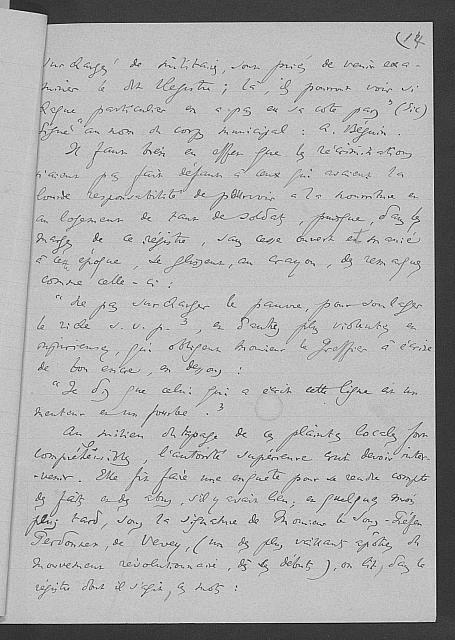 (14
surchargés de militaires, sont priés de venir exa-
miner le dit Registre ; là, ils pourront voir si
chaque particulier en a pas en sa cote part" (sic)
Signé "au nom du corps municipal : A. Béguin.
Il faut bien en effet que les récriminations
n'aient pas fait défaut à ceux qui avaient la
lourde responsabilité de pourvoir à la nourriture et
au logement de tant de soldats, puisque, dans les
marges de ce registre, sans cesse ouvert et manié
à cette époque, se glissent, au crayon, des remarques
comme celle-ci :
"Ne pas surcharger le pauvre, pour soulager
le riche s.v.p.", et d'autres plus violentes et
injurieuses, qui obligent Monsieur le Greffier à écrire
de bon encre, en dessous :
"Je dis que celui qui a écrit cette ligne est un
menteur et un fourbe."
Au milieu du tapage de ces plaintes locales fort
compréhensibles, l'autorité supérieure crut devoir inter-
-venir. Elle fit faire une enquête pour se rendre compte
des faits et des abus, s'il y avait lieu, et quelques mois
plus tard, sous la signature de Monsieur le Sous-Préfet
Perdonnet, de Vevey, (un des plus vaillants apôtres du
mouvement révolutionnaire, dès les débuts), on lit, dans le
registre dont il s'agit, ces mots :